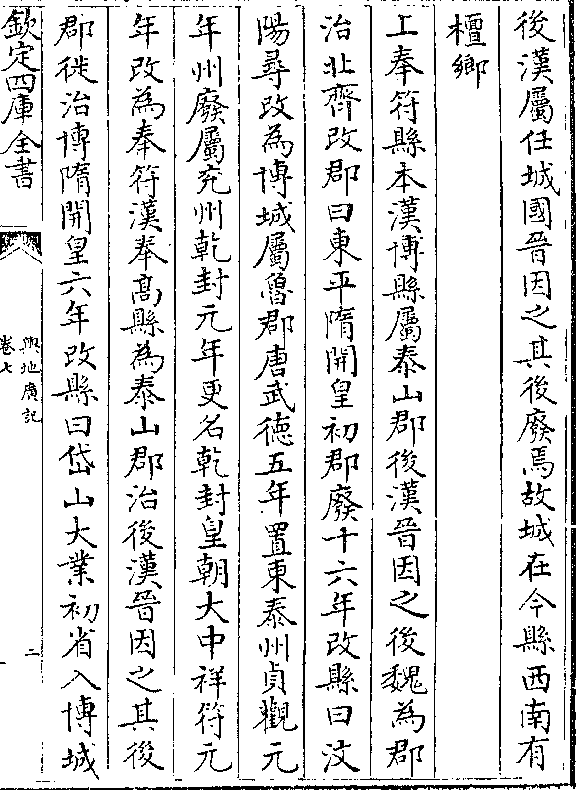 後漢屬任城國晉因之其後廢焉故城在今縣西南有
檀鄉
上奉符縣本漢博縣屬泰山郡後漢晉因之後魏為郡
治北齊改郡曰東平隋開皇初郡廢十六年改縣曰汶
陽尋改為博城屬魯郡唐武德五年置東泰州貞觀元
年州廢屬兖州乾封元年更名乾封皇朝大中祥符元
年改為奉符漢奉髙縣為泰山郡治後漢晉因之其後
郡徙治博隋開皇六年改縣曰岱山大業初省入博城
欽定四庫全書
輿地廣記
卷七
二